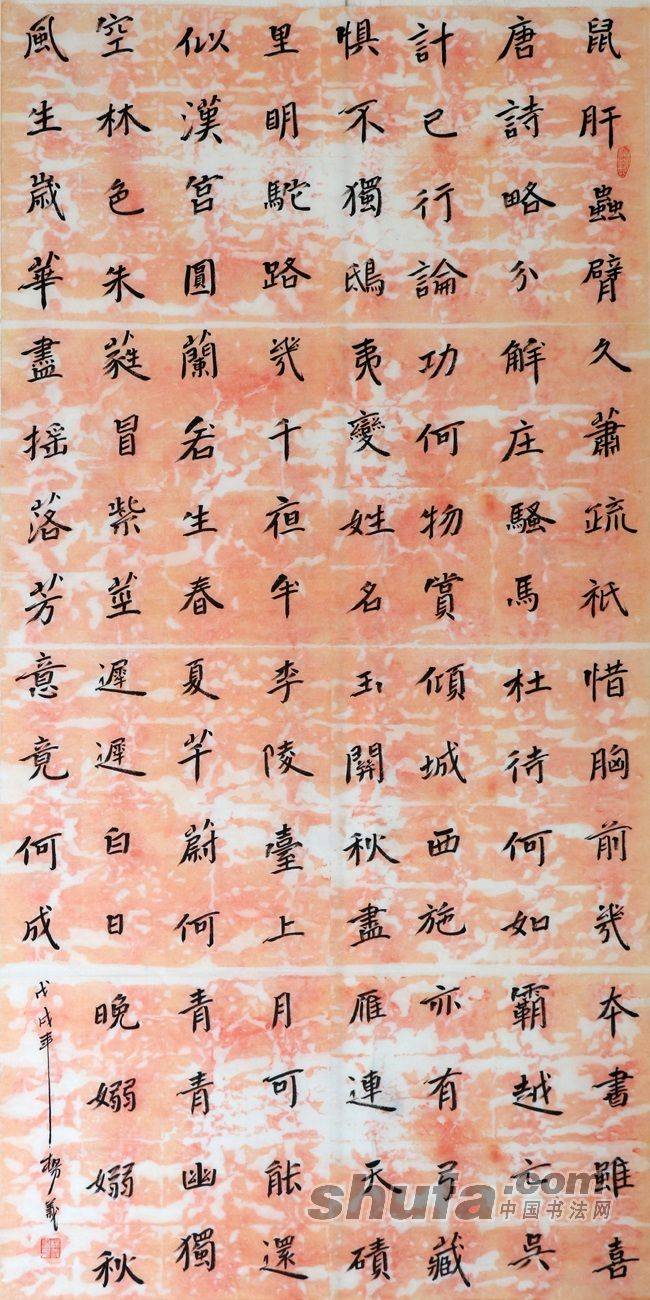 鼠肝蟲臂久蕭疏祇惜胸前幾本書雖喜
唐詩略分解庄騷馬杜待何如霸越亡吳
計已行論功何物賞傾城西施亦有弓藏
惧不獨鴟夷變姓名玉關秋盡雁連天磧
里明駝路幾千夜半李陵臺上月可能還
似漢宮圓蘭若生春夏芊蔚何青青幽獨
空林色朱蕤冒紫莖遲遲白日晚嫋嫋秋
風生歲華盡搖落芳意竟何成
戊戌年
shufa.com
中国书法网